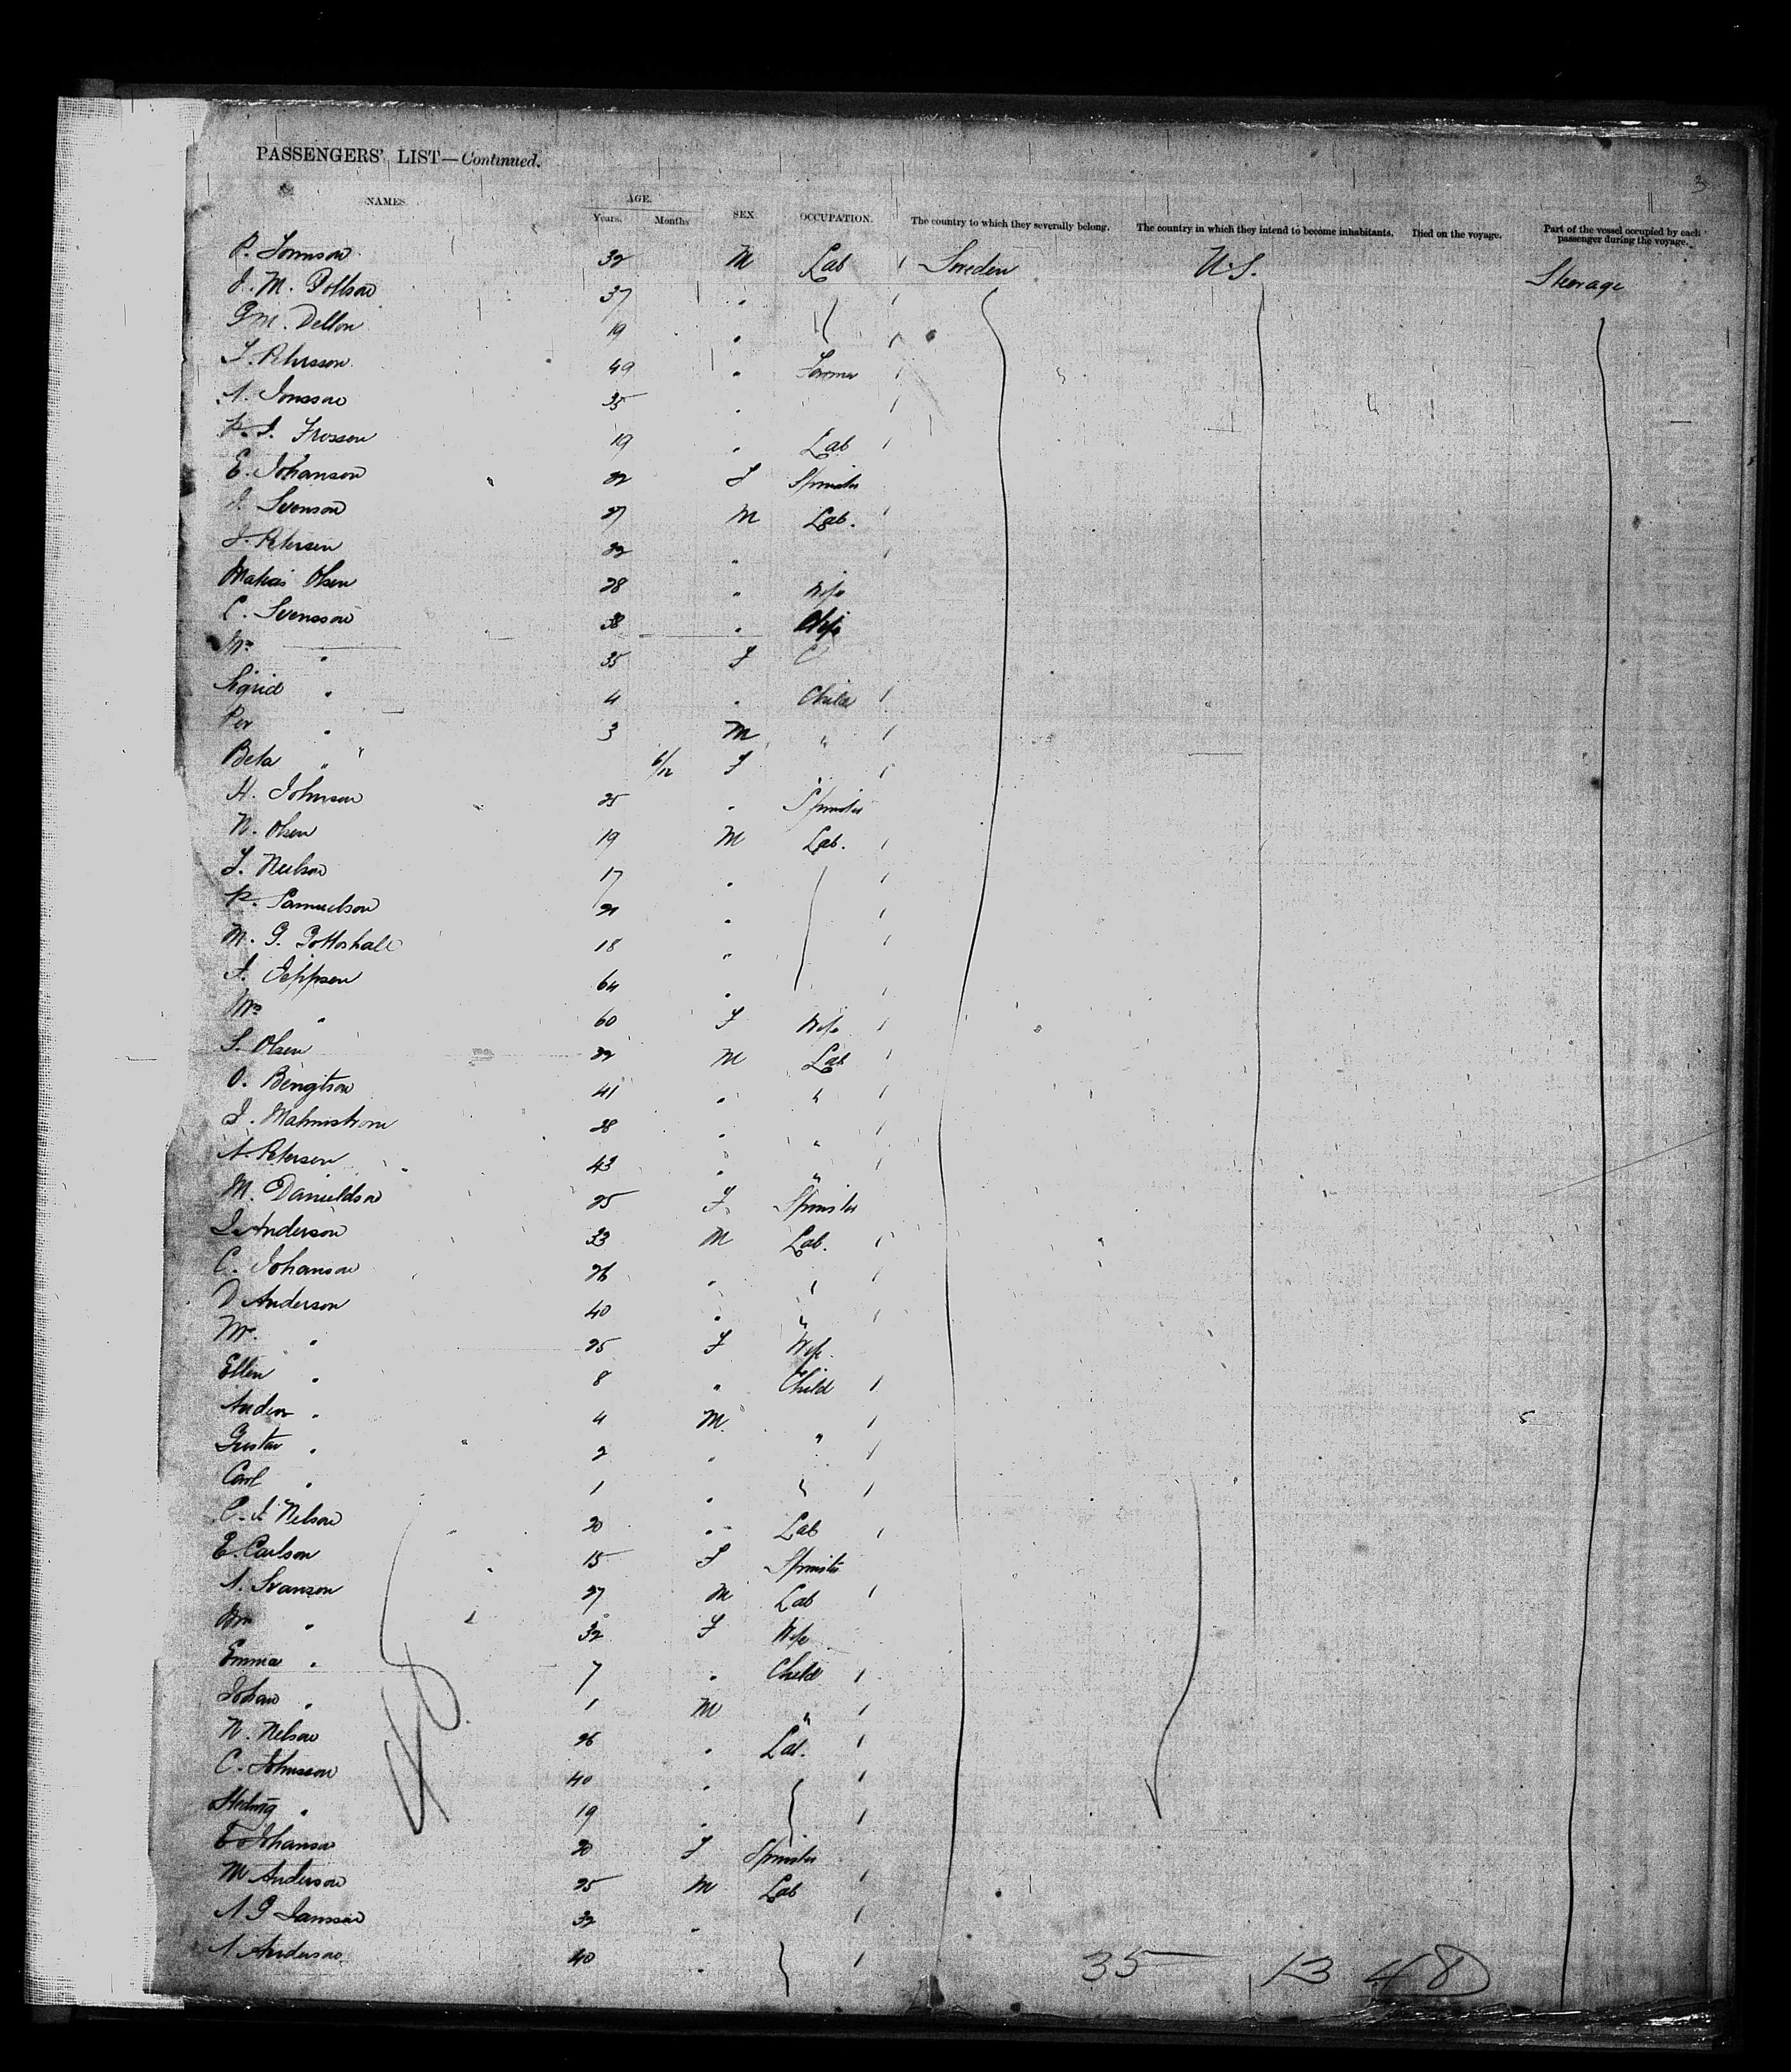 3
PASSENGERS' LIST—Continued.
NAMES. AGE. Years. Months SEX. OCCUPATION. The country to which they severally belong. The country in which they intend to become inhabitants. Died on the voyage. Part of the vessel occupied by each passenger during the voyage.
P. Jonnson 32 M Lab Sweden U.S. Steerage
J. M. 37 "
G M. Dellon 19 "
49 " Farmer
A. Jonsson 35 "
19 " Lab
E. Johanson 22 F Spinster
J. Svenson 27 M Lab.
J. Petersen 22 "
Matias Olsen 28 " Wife
C. Svensson 38 "
Mrs " 35 F
Sigrid " 4 " Child
Per " 3 M "
Beta " 6/12 F
H. Johnson 25 " Spinster
N. Olsen 19 M Lab.
17 "
P. Samuelson 21 "
M. G. Gottoshall 18 "
J. Jeppsen 64 "
Mrs " 60 F Wife
S. Olsen 22 M Lab
O. Bengtson 41 " "
J. Malmstrom 28 " "
A. Petersen 43 " "
M. Danieldson 25 F Spinster
J. Anderson 33 M Lab.
C. Johanson 26 "
D Anderson 40 " "
Mrs " 25 F Wife
Ellen " 8 " Child
Anders " 4 M.
Gustav " 2 " "
Carl " 1 " "
C. J. Nelson 20 " Lab
E. Carlson 15 F Spinster
A. Svanson 27 M Lab
Mrs " 32 F Wife
Emma " 7 " Child
Johan " 1 M "
N. Nelson 26 " Lab.
C. Johnsson 40 "
Hedwig " 19 "
E Johanson 20 F Spinster
M Anderson 25 M Lab
A G Jansson 32 "
A Anderson 40 "
48
35 13 48